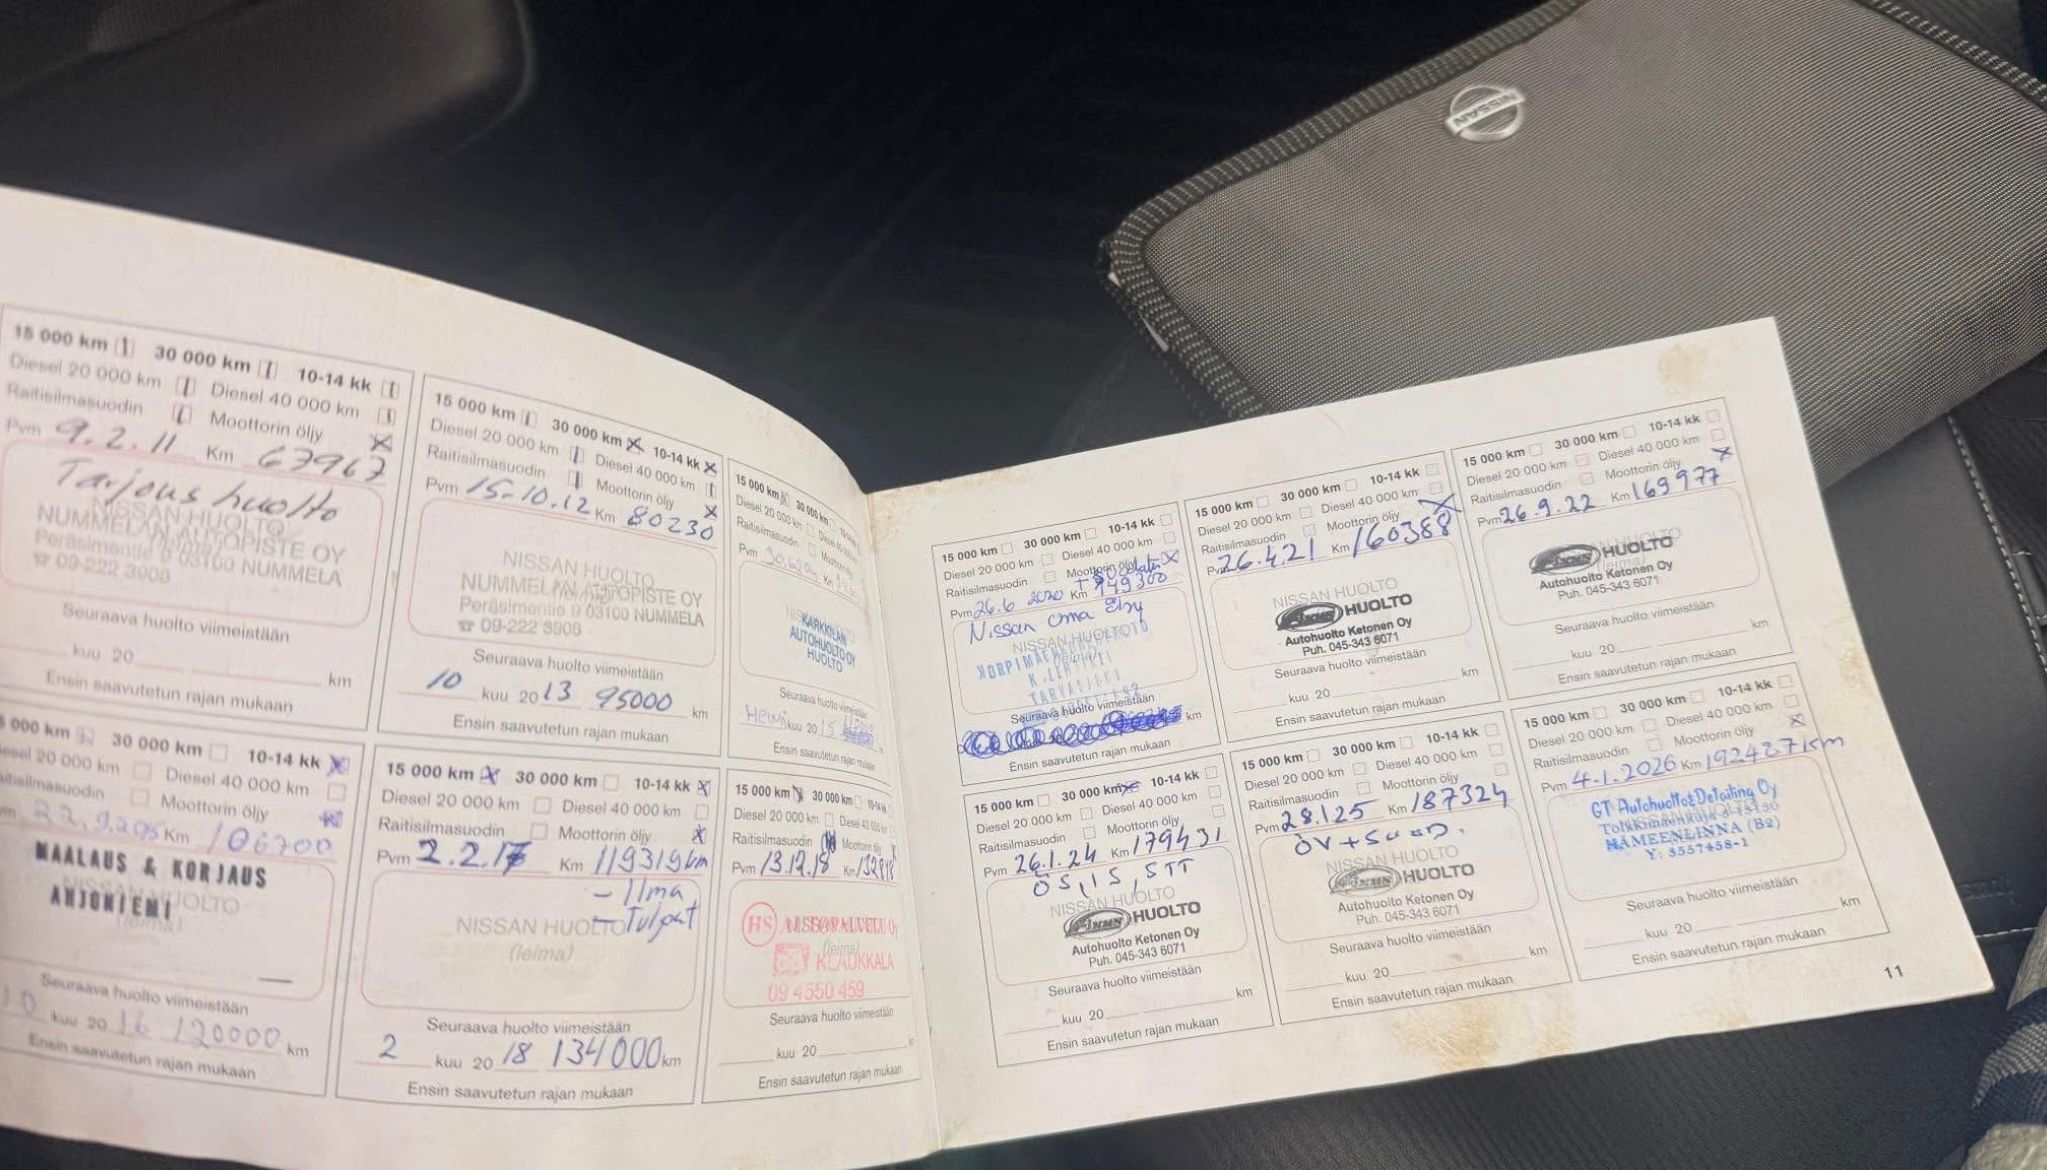 NISSAN
15 000 km 30 000 km 10-14 kk
Diesel 20 000 km Diesel 40 000 km
Raitisilmasuodin Moottorin öljy
Pvm 9.2.11 Km 67967
Tarjous huolto
NISSAN HUOLTO
NUMMELAN AUTOPISTE OY
Peräsimentie 9 03100 NUMMELA
☎ 09-222 3908
Seuraava huolto viimeistään
kuu 20 km
Ensin saavutetun rajan mukaan
15 000 km 30 000 km 10-14 kk
Diesel 20 000 km Diesel 40 000 km
Raitisilmasuodin Moottorin öljy
Pvm 15.10.12 Km 80230
NISSAN HUOLTO
NUMMELAN AUTOPISTE OY
Peräsimentie 9 03100 NUMMELA
☎ 09-222 3908
Seuraava huolto viimeistään
10 kuu 2013 95000 km
Ensin saavutetun rajan mukaan
15 000 km 30 000 km
Diesel 20 000 km
Raitisilmasuodin
Pvm
KARKKILAN
AUTOHUOLTO OY
HUOLTO
Seuraava huolto viimeistään
Heinä kuu 2015
Ensin saavutetun rajan mukaan
000 km 30 000 km 10-14 kk
Diesel 20 000 km Diesel 40 000 km
Moottorin öljy
Km 106700
MAALAUS & KORJAUS
NISSAN HUOLTO
AHJONIEMI
(leima)
Seuraava huolto viimeistään
10 kuu 2016 120000 km
Ensin saavutetun rajan mukaan
15 000 km 30 000 km 10-14 kk
Diesel 20 000 km Diesel 40 000 km
Raitisilmasuodin Moottorin öljy
Pvm 2.2.17 Km 119319km
- Ilma
NISSAN HUOLTO - Tulpat
(leima)
Seuraava huolto viimeistään
2 kuu 2018 134000 km
Ensin saavutetun rajan mukaan
15 000 km 30 000 km
Diesel 20 000 km Diesel 40 000 km
Raitisilmasuodin Moottorin öljy
Pvm 13.12.18 Km
HS AUTOPALVELU Oy
(leima)
KLAUKKALA
09 4550 459
Seuraava huolto viimeistään
kuu 20
Ensin saavutetun rajan mukaan
15 000 km 30 000 km 10-14 kk
Diesel 20 000 km Diesel 40 000 km
Raitisilmasuodin Moottorin öljy
Pvm 26.6 2020 Km 149300
Nissan oma öljy
NISSAN HUOLTO
(leima)
Seuraava huolto viimeistään
km
Ensin saavutetun rajan mukaan
15 000 km 30 000 km 10-14 kk
Diesel 20 000 km Diesel 40 000 km
Raitisilmasuodin Moottorin öljy
Pvm 26.4.21 Km 160388
NISSAN HUOLTO
HUOLTO
Autohuolto Ketonen Oy
Puh. 045-343 6071
Seuraava huolto viimeistään
kuu 20 km
Ensin saavutetun rajan mukaan
15 000 km 30 000 km 10-14 kk
Diesel 20 000 km Diesel 40 000 km
Raitisilmasuodin Moottorin öljy
Pvm 26.9.22 Km 169977
HUOLTO
(leima)
Autohuolto Ketonen Oy
Puh. 045-343 6071
Seuraava huolto viimeistään
kuu 20 km
Ensin saavutetun rajan mukaan
15 000 km 30 000 km 10-14 kk
Diesel 20 000 km Diesel 40 000 km
Raitisilmasuodin Moottorin öljy
Pvm 26.1.24 Km 179431
ÖS, IS, STT
NISSAN HUOLTO
HUOLTO
Autohuolto Ketonen Oy
Puh. 045-343 6071
Seuraava huolto viimeistään
kuu 20 km
Ensin saavutetun rajan mukaan
15 000 km 30 000 km 10-14 kk
Diesel 20 000 km Diesel 40 000 km
Raitisilmasuodin Moottorin öljy
Pvm 28.1.25 Km 187324
ÖV + SUOD.
NISSAN HUOLTO
HUOLTO
Autohuolto Ketonen Oy
Puh. 045-343 6071
Seuraava huolto viimeistään
kuu 20 km
Ensin saavutetun rajan mukaan
15 000 km 30 000 km 10-14 kk
Diesel 20 000 km Diesel 40 000 km
Raitisilmasuodin Moottorin öljy
Pvm 4.1.2026 Km 192487km
GT Autohuolto & Detailing Oy
HÄMEENLINNA (B2)
Y: 3557458-1
Seuraava huolto viimeistään
kuu 20 km
Ensin saavutetun rajan mukaan
11